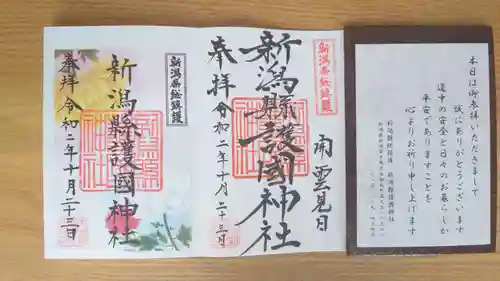 本日は御参拝いただきまして
誠にありがとうございます
道中の安全と日々のお暮らしが
平安でありますことを
心よりお祈り申し上げます
新潟県総鎮護
雨雲見日
新潟縣護國神社
奉拝 令和二年十月二十三日
新潟県総鎮護
新潟縣護國神社
奉拝 令和二年十月二十三日